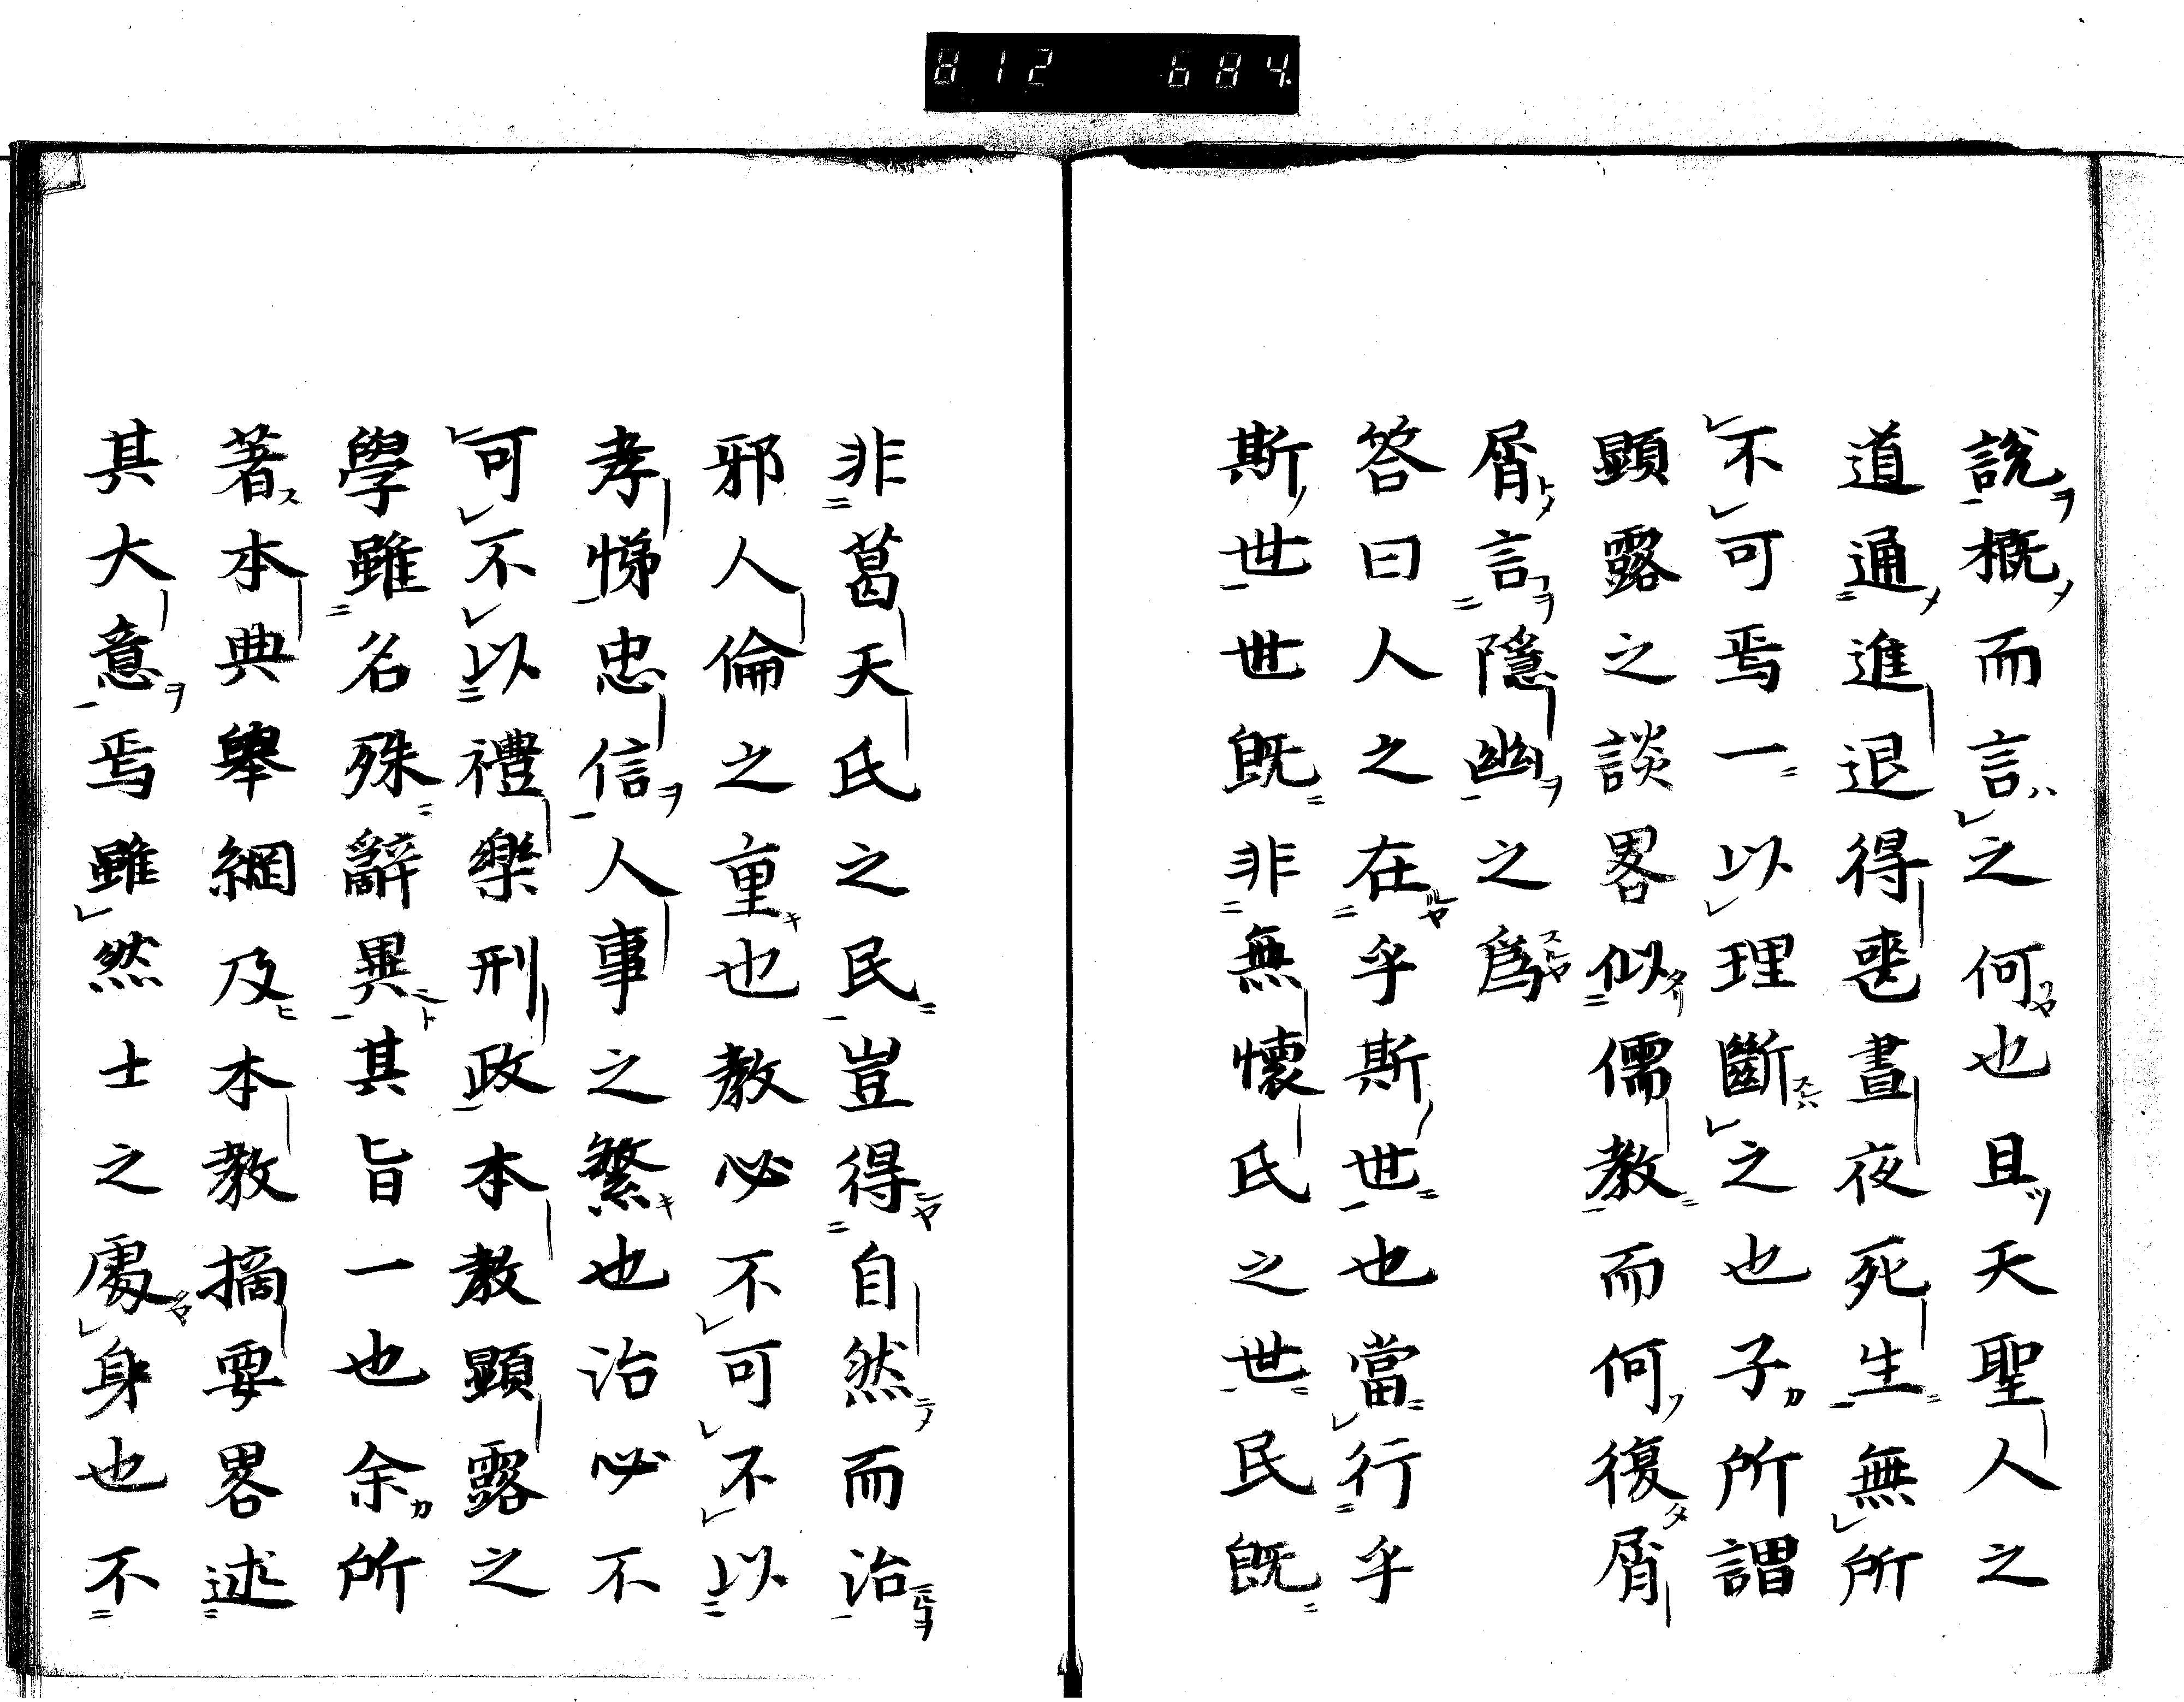 812 684
說概而言之何也且天聖人之
道通進退得喪晝夜死生無所
不可焉一以理斷之也子所謂
顯露之談畧似儒教而何復屑
屑言隱幽之爲
答曰人之在乎斯世也當行乎
斯世世既非無懷氏之世民既
非葛天氏之民豈得自然而治
邪人倫之重也教必不可不以
孝悌忠信人事之繁也治必不
可不以禮樂刑政本教顯露之
學雖名殊辭異其旨一也余所
著本典舉網及本教摘要畧述
其大意焉雖然士之處身也不